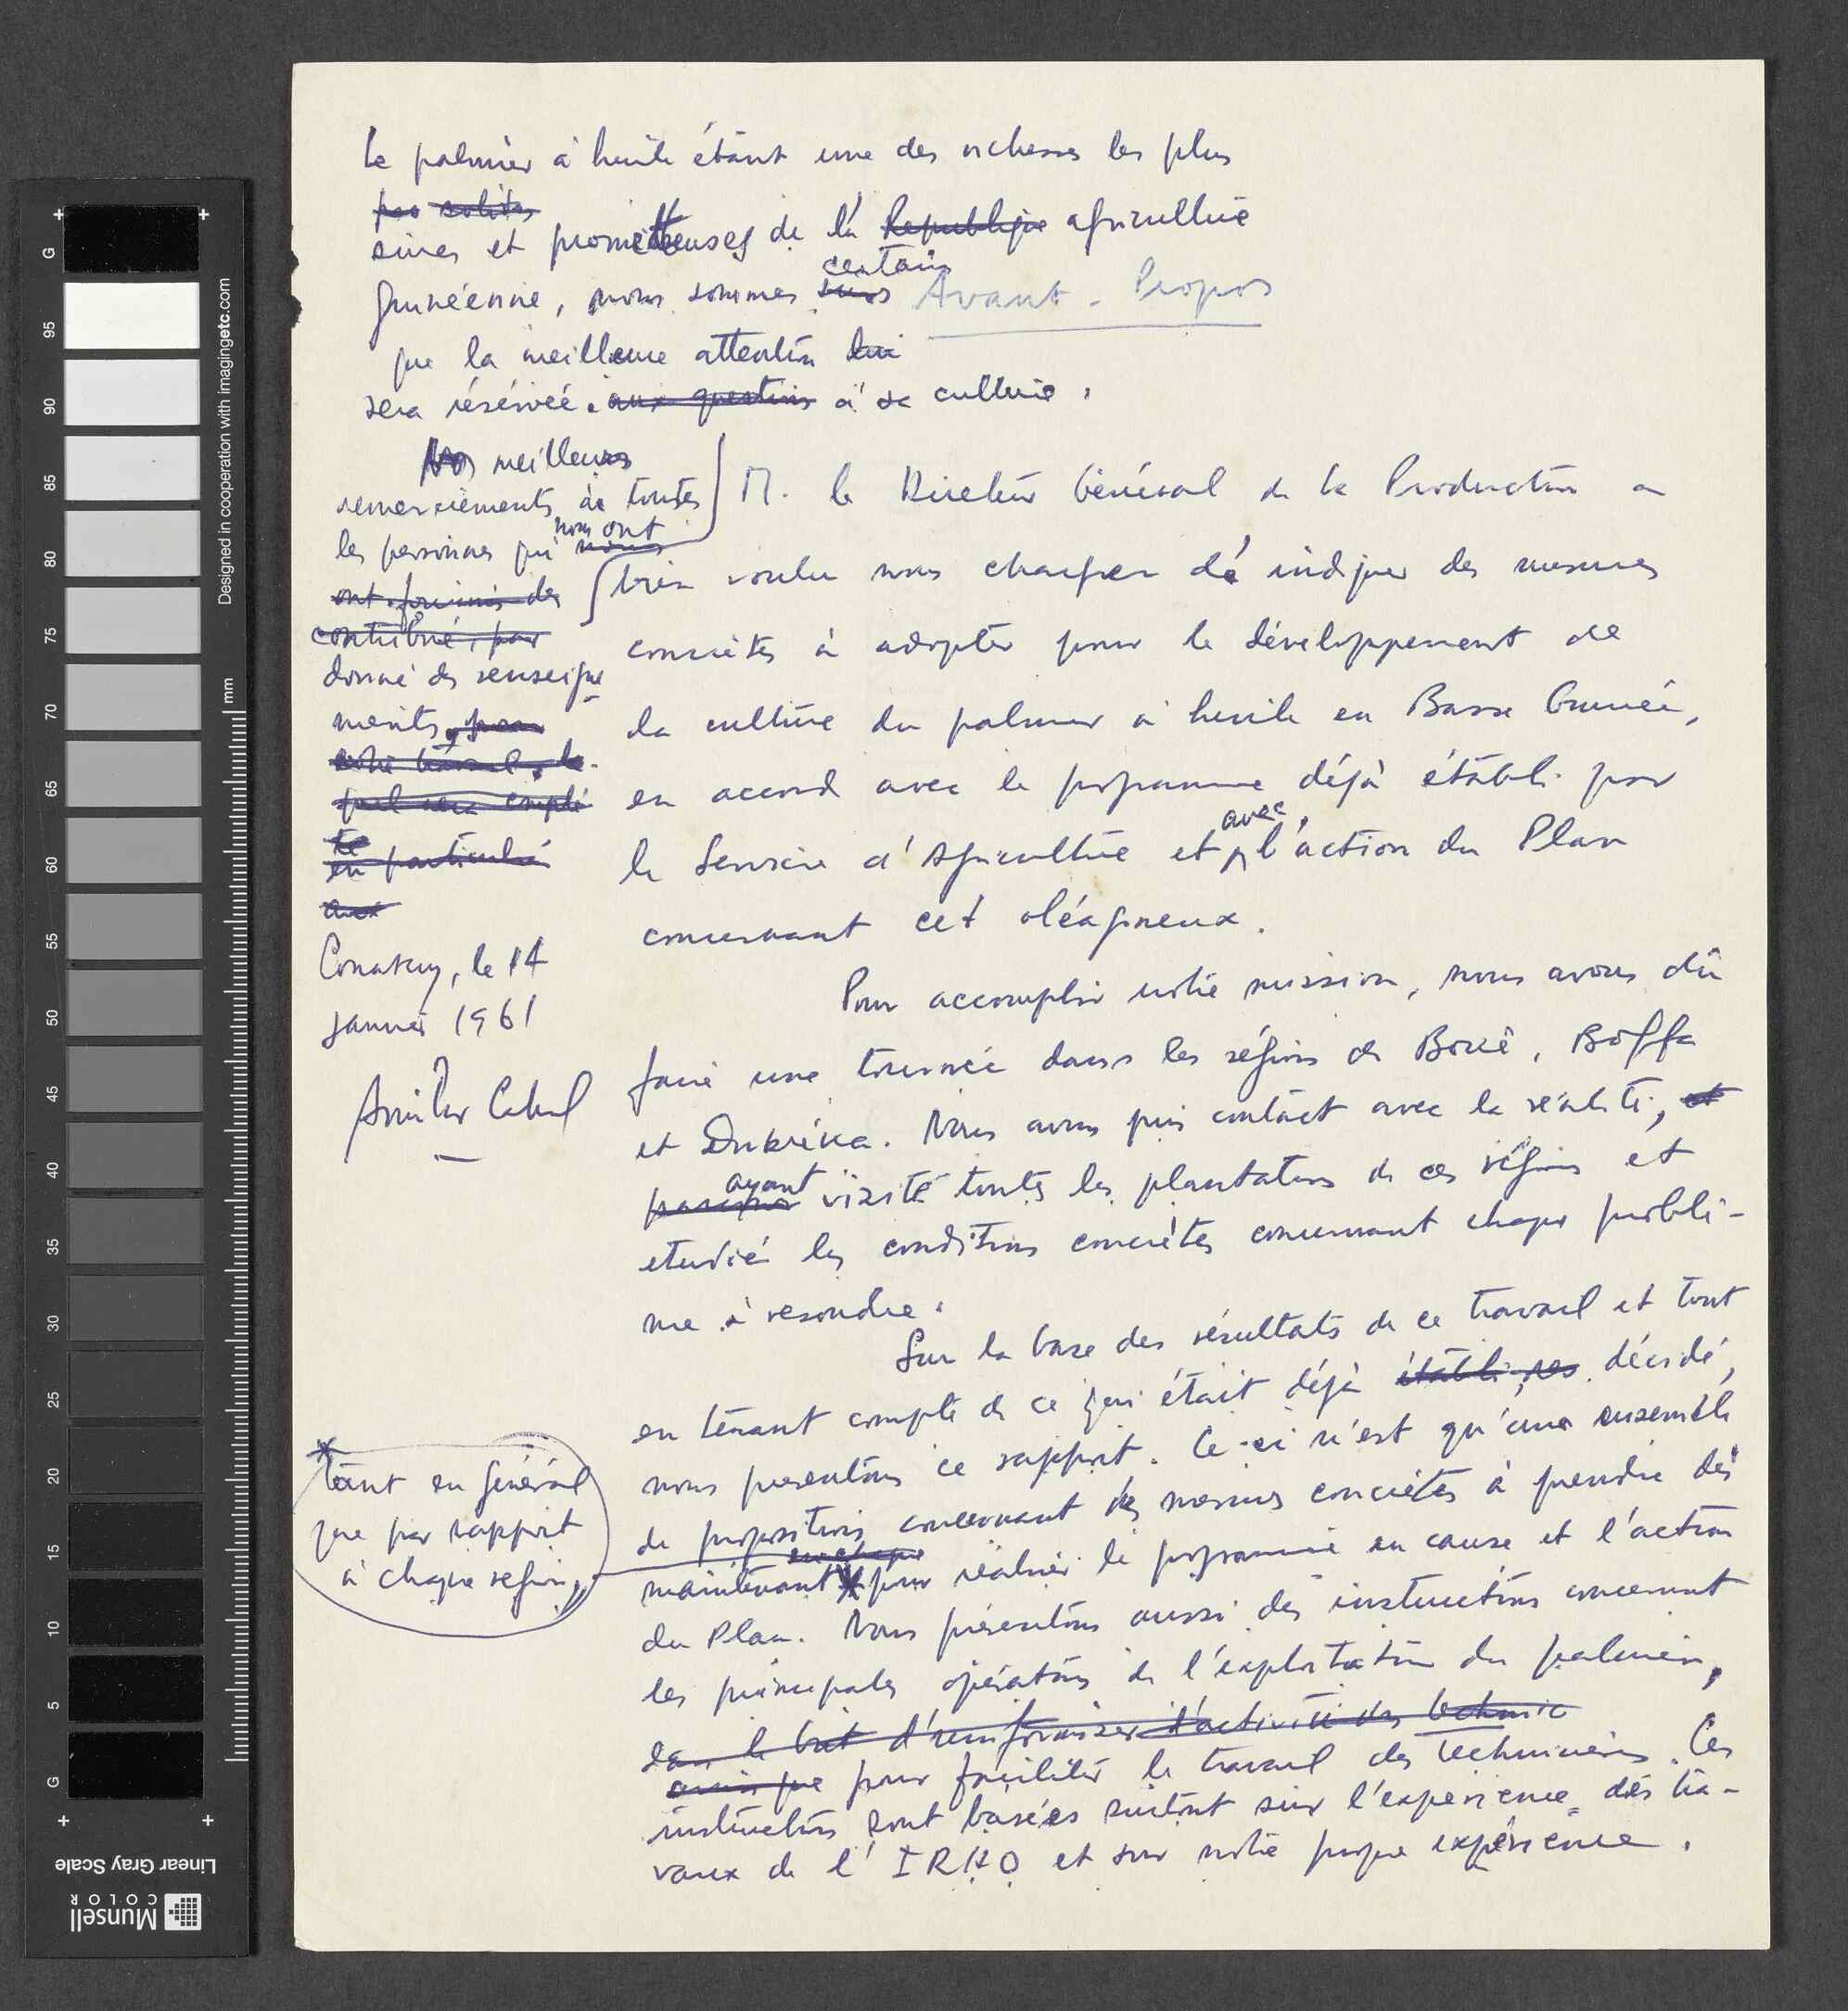 Avant-Propos
M. le Directeur Général de la Production a
bien voulu nous charger d'indiquer des mesures
concrètes à adopter pour le développement de
la culture du palmier à huile en Basse Guinée,
en accord avec le programme déjà établi par
le Service d'Agriculture et avec l'action du Plan
concernant cet oléagineux.
Pour accomplir notre mission, nous avons dû
faire une tournée dans les régions de Boké, Boffa
et Dubréka. Nous avons pris contact avec la réalité, et
ayant visité toutes les plantations de ces régions et
etudié les conditions concrètes concernant chaque problè-
me à resoudre.
Sur la base des résultats de ce travail et tout
en tenant compte de ce qui était déjà établi décidé,
nous presentons ce rapport. Ce-ci n'est qu'une ensemble
de propositions concernant des mesures concrètes à prendre dès
en chaque
maintenant * pour réaliser le programme en cause et l'action
du Plan. Nous présentons aussi des instructions concernant
les principales opérations de l'exploitation du palmier,
dans le but d'uniformiser l'activité des technic
ainsi que pour faciliter le travail des techniciens. Ces
instructions sont basées surtout sur l'expérience des tra-
vaux de l'IRHO et sur notre propre expérience.
* tant en général
que par rapport
à chaque region,
Le palmier à huile étant une des richesses les plus
solides
sures et prometteuses de la Republique agriculture
guinéenne, nous sommes surs certains
que la meilleure attention lui
sera réservée. aux questions à sa culture.
Nos meilleurs
remerciements à toutes
les personnes qui nous ont
ont fournis des
contribué, par
donné des renseigne-
ments pour
notre travail, le-
quel sera complé
té
en particulier
aux
Conakry, le 14
Janvier 1961
Amilcar Cabral
G
95
90
85
80
75
70
65
60
55
50
45
40
35
30
25
20
15
10
5
G
mm
Designed in cooperation with imagingetc.com
Linear Gray Scale
Munsell
COLOR